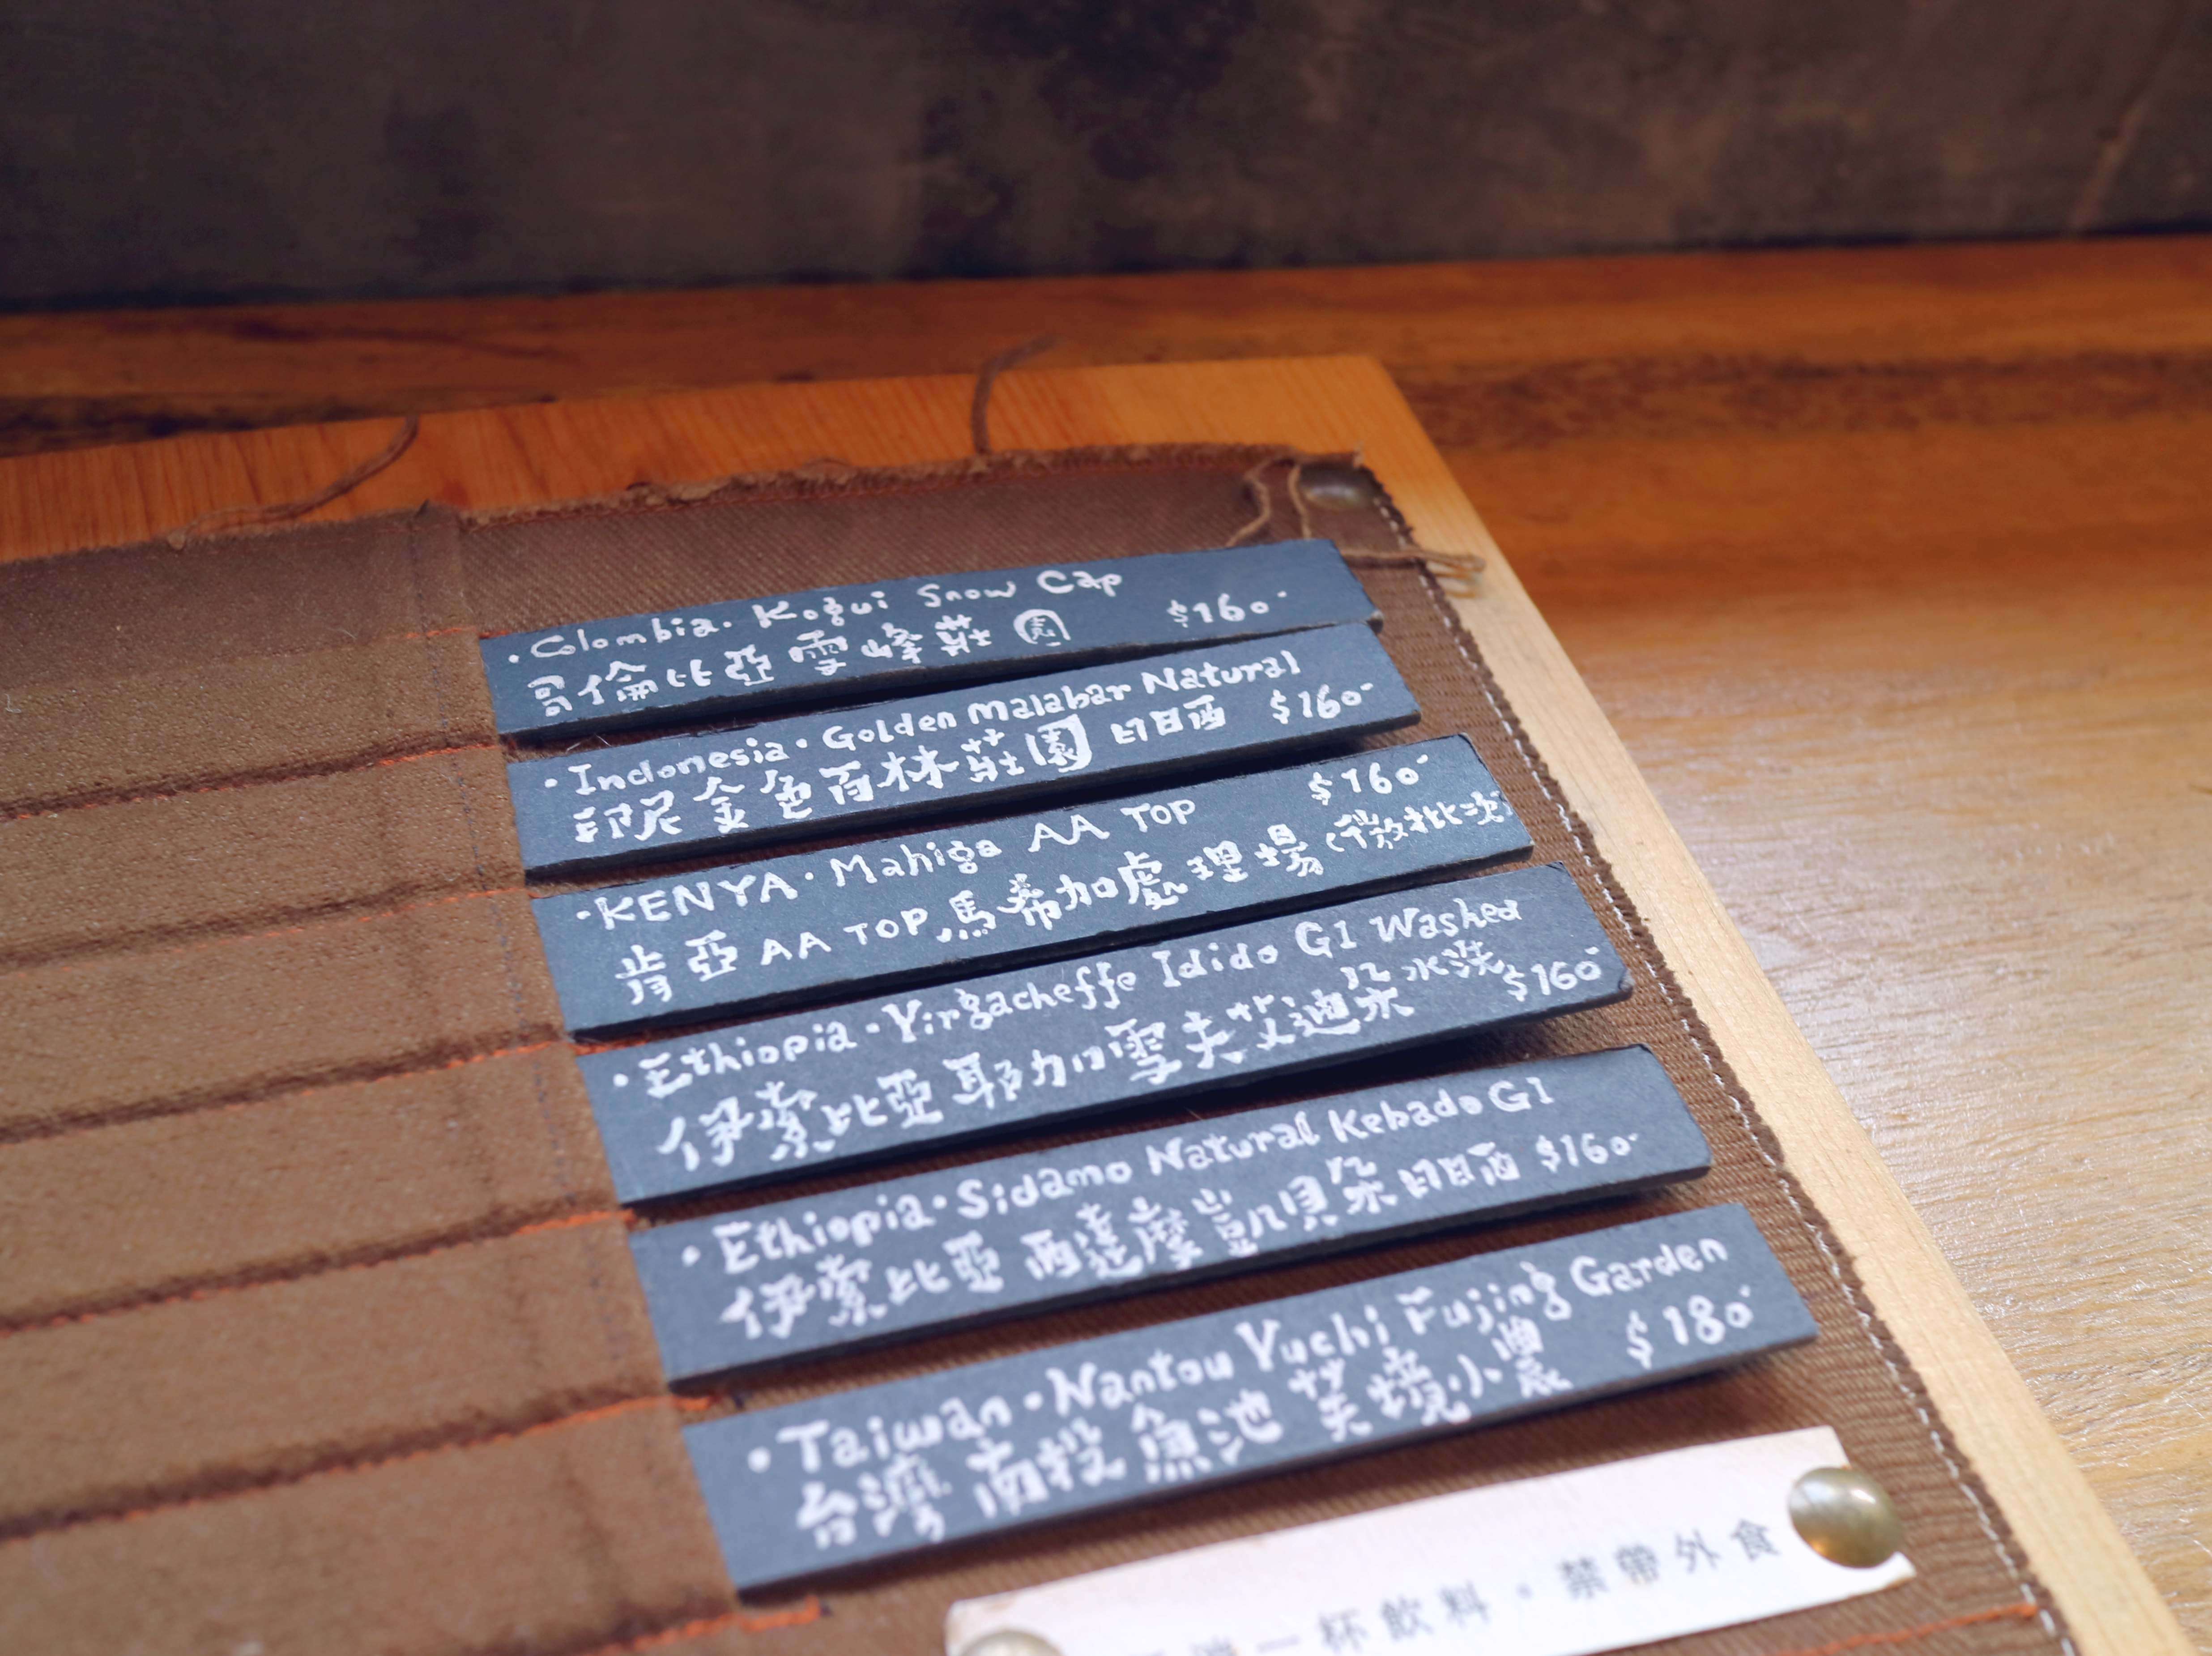 ·Colombia. Kogui Snow Cap
哥倫比亞雪峰莊園 $160
·Indonesia·Golden Malabar Natural
印尼金色百林莊園 日晒 $160
·KENYA·Mahiga AA TOP $160
肯亞AA TOP馬希加處理場(微批次)
·Ethiopia·Yirgacheffe Idido G1 Washed
伊索比亞耶加雪夫艾迪朵水洗 $160
·Ethiopia·Sidamo Natural Kebado G1
伊索比亞西達摩凱貝朵日晒 $160
·Taiwan·Nantou Yuchi Fujing Garden
台灣南投魚池芙境小農 $180
一杯飲料。禁帶外食